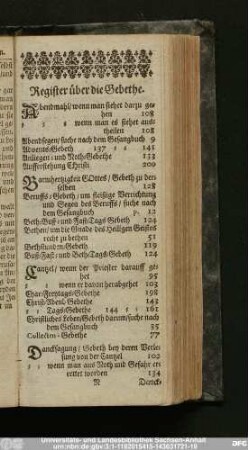 Register über die Gebethe.
Abendmahl wenn man siehet darzu gehen 108
wenn man es siehet austheilen 108
Abendsegen/ suche nach dem Gesangbuch 9
Advents-Gebeth 137 141
Anliegen- und Noth-Gebethe 152
Aufferstehung Christi 209
Barmhertzigkeit GOttes/ Gebeth zu derselben 128
Beruffs-Gebeth/ um fleißige Verrichtung
und Segen des Beruffs/ suche nach
dem Gesangbuch p. 12
Beth-Buß- und Fast-Tags Gebeth 124
Bethen/ um die Gnade des Heiligen Geistes
recht zu bethen 51
Bethstunden-Gebeth 119
Buß-Fast- und Beth-Tags-Gebeth 124
Cantzel/ wenn der Priester darauff gehet 95
wenn er davon herabgehet 103
Char-Freytags-Gebethe 198
Christ-Abend-Gebethe 143
Tags-Gebethe 144 161
Christliches Leben/Gebeth darum/suche nach
dem Gesangbuch 35
Collecten-Gebethe 77
Dancksagung/ Gebeth bey deren Verlesung
von der Cantzel 102
wenn man aus Noth und Gefahr errettet
worden 154
N Danck-
Universitäts- und Landesbibliothek Sachsen-Anhalt
urn:nbn:de:gbv:3:1-1192015415-143631721-18